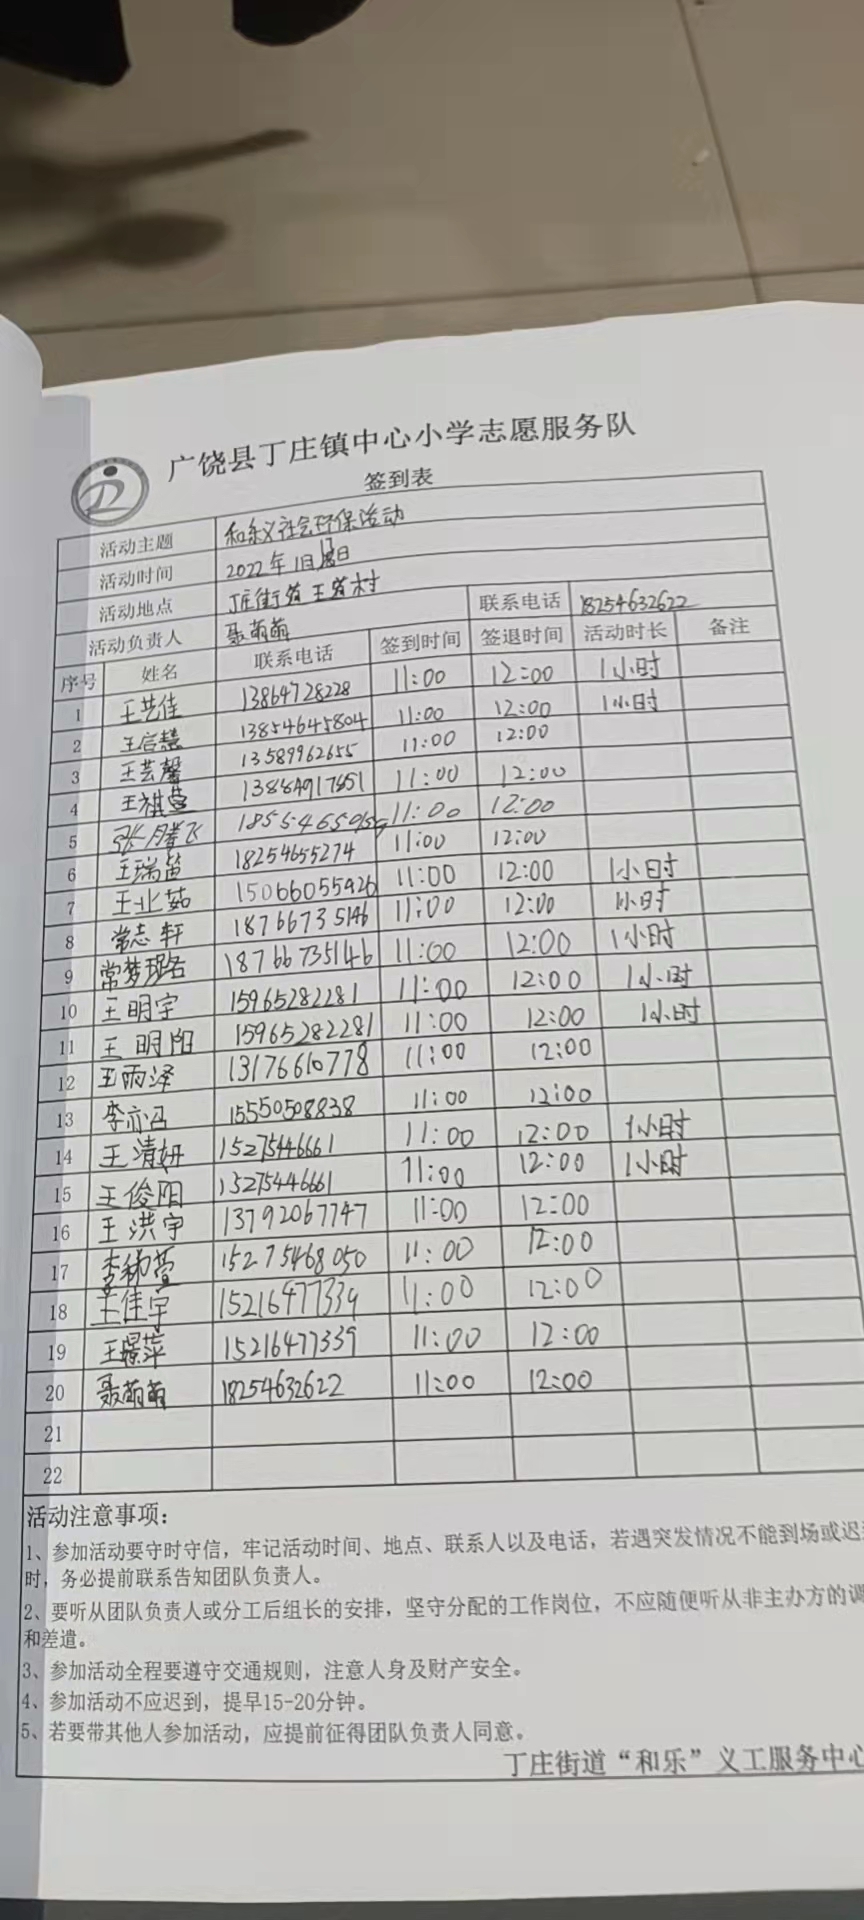 广饶县丁庄镇中心小学志愿服务队
签到表
活动主题 社会环保活动
活动时间 2022年1月 日
活动地点 丁庄街道王道村
活动负责人 聂萌萌 联系电话 18254632622
序号 姓名 联系电话 签到时间 签退时间 活动时长 备注
1 王艺佳 13864728228 11:00 12:00 1小时
2 王启慧 13854645804 11:00 12:00 1小时
3 王芸馨 13589962655 11:00 12:00
4 王祺萱 11:00 12:00
5 张腾飞 11:00 12:00
6 王瑞笛 18254655274 11:00 12:00
7 王业茹 15066055926 11:00 12:00 1小时
8 常志轩 18766735146 11:00 12:00 1小时
9 常梦璐 18766735146 11:00 12:00 1小时
10 王明宇 15965282281 11:00 12:00 1小时
11 王明阳 15965282281 11:00 12:00 1小时
12 王雨泽 13176610778 11:00 12:00
13 李亦 15550508838 11:00 12:00
14 王清妍 15275446661 11:00 12:00 1小时
15 王俊阳 15275446661 11:00 12:00 1小时
16 王洪宇 13792067747 11:00 12:00
17 李 萱 15275468050 11:00 12:00
18 王佳宇 15216477339 11:00 12:00
19 王 萍 15216477339 11:00 12:00
20 聂萌萌 18254632622 11:00 12:00
21
22
活动注意事项：
1、参加活动要守时守信，牢记活动时间、地点、联系人以及电话，若遇突发情况不能到场或迟
时，务必提前联系告知团队负责人。
2、要听从团队负责人或分工后组长的安排，坚守分配的工作岗位，不应随便听从非主办方的调
和差遣。
3、参加活动全程要遵守交通规则，注意人身及财产安全。
4、参加活动不应迟到，提早15-20分钟。
5、若要带其他人参加活动，应提前征得团队负责人同意。
丁庄街道“和乐”义工服务中心